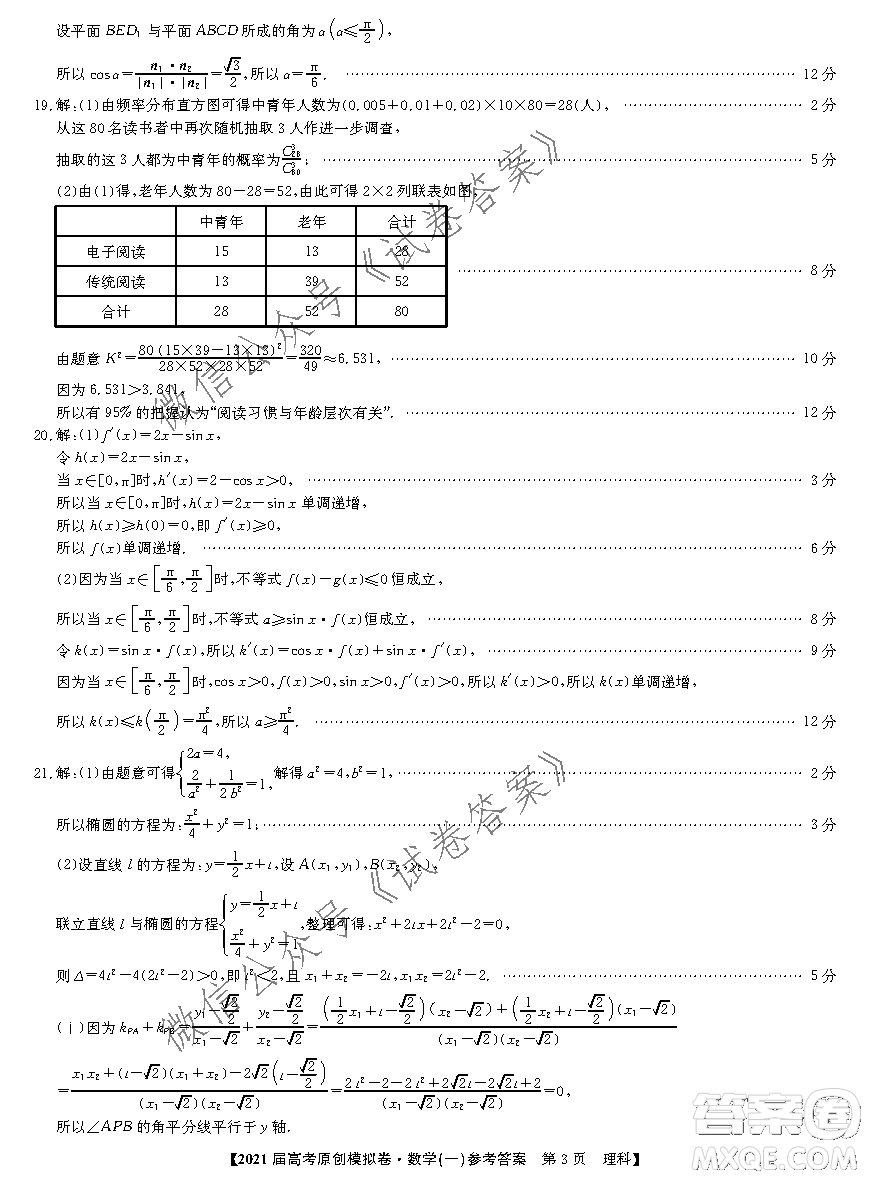 设平面 BED₁ 与平面 ABCD 所成的角为 α(α≤π/2),
所以 cos α=n₁·n₂/|n₁|·|n₂|=√3/2,所以 α=π/6. …… 12 分
19.解:(1)由频率分布直方图可得中青年人数为(0.005+0.01+0.02)×10×80=28(人), …… 2 分
从这 80 名读书者中再次随机抽取 3 人作进一步调查,
抽取的这 3 人都为中青年的概率为C³₂₈/C³₈₀; …… 5 分
(2)由(1)得,老年人数为 80-28=52,由此可得 2×2 列联表如图:
中青年 老年 合计
电子阅读 15 13 28
传统阅读 13 39 52
合计 28 52 80
…… 8 分
由题意 K²=80(15×39-13×13)²/28×52×28×52=320/49≈6.531, …… 10 分
因为 6.531>3.841,
所以有 95% 的把握认为“阅读习惯与年龄层次有关”. …… 12 分
20.解:(1)f′(x)=2x-sin x,
令 h(x)=2x-sin x,
当 x∈[0,π]时,h′(x)=2-cos x>0, …… 3 分
所以当 x∈[0,π]时,h(x)=2x-sin x 单调递增,
所以 h(x)≥h(0)=0,即 f′(x)≥0,
所以 f(x)单调递增. …… 6 分
(2)因为当 x∈[π/6,π/2]时,不等式 f(x)-g(x)≤0 恒成立,
所以当 x∈[π/6,π/2]时,不等式 a≥sin x·f(x)恒成立, …… 8 分
令 k(x)=sin x·f(x),所以 k′(x)=cos x·f(x)+sin x·f′(x), …… 9 分
因为当 x∈[π/6,π/2]时,cos x>0,f(x)>0,sin x>0,f′(x)>0,所以 k′(x)>0,所以 k(x)单调递增,
所以 k(x)≤k(π/2)=π²/4,所以 a≥π²/4. …… 12 分
21.解:(1)由题意可得{2a=4, 2/a²+1/2b²=1,解得 a²=4,b²=1, …… 2 分
所以椭圆的方程为:x²/4+y²=1; …… 3 分
(2)设直线 l 的方程为:y=1/2x+t,设 A(x₁,y₁),B(x₂,y₂),
联立直线 l 与椭圆的方程{y=1/2x+t x²/4+y²=1,整理可得:x²+2tx+2t²-2=0,
则 Δ=4t²-4(2t²-2)>0,即 t²<2,且 x₁+x₂=-2t,x₁x₂=2t²-2. …… 5 分
(ⅰ)因为 k_PA+k_PB=(y₁-√2/2)/(x₁-√2)+(y₂-√2/2)/(x₂-√2)=((1/2x₁+t-√2/2)(x₂-√2)+(1/2x₂+t-√2/2)(x₁-√2))/((x₁-√2)(x₂-√2))
=(x₁x₂+(t-√2)(x₁+x₂)-2√2(t-√2/2))/((x₁-√2)(x₂-√2))=(2t²-2-2t²+2√2t-2√2t+2)/((x₁-√2)(x₂-√2))=0,
所以∠APB 的角平分线平行于 y 轴.
【2021 届高考原创模拟卷·数学(一)参考答案 第 3 页 理科】
微信公众号《试卷答案》
微信公众号《试卷答案》
答案卷